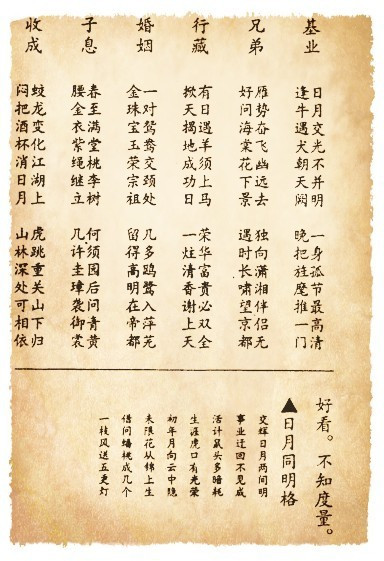 基业
日月交光不并明 一身孤节最高清
逢牛遇犬朝天阙 晚把旌麾推一门
兄弟
雁势奋飞幽远去 独向潇湘伴侣无
好问海棠花下景 遇时长啸望京都
行藏
有日遇羊须上马 荣华富贵必双全
掀天揭地成功日 一炷清香谢上天
婚姻
一对鸳鸯交颈处 几多鸥鹭入萍芜
金珠宝玉荣宗祖 留得高明在帝都
子息
春至满堂桃李树 何须园后问青黄
腰金衣紫绳继立 几许圭璋袭御裳
收成
蛟龙变化江湖上 虎跳重关山下归
闷把酒杯消日月 山林深处可相依
好看。不知度量。
▲日月同明格
交辉日月两间明
事业迂回不见成
活计鼠头多暗耗
生涯虎口有光荣
初年月向云中隐
末限花从锦上生
借问蟠桃成几个
一枝风送五更灯